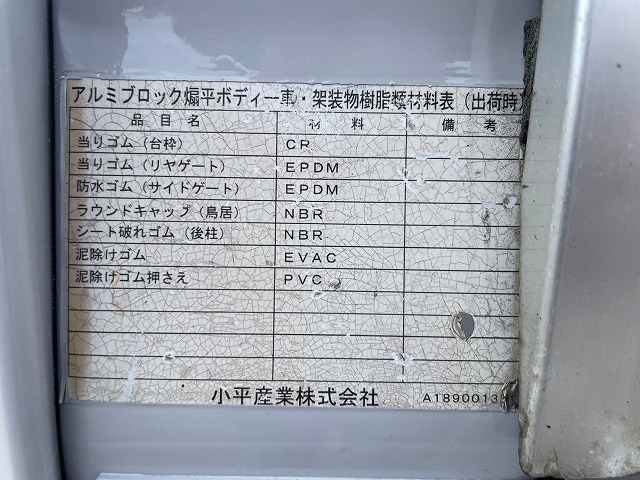 アルミブロック煽平ボディー車・架装物樹脂類材料表(出荷時)
品目名 材料 備考
当りゴム(台枠) CR
当りゴム(リヤゲート) EPDM
防水ゴム(サイドゲート) EPDM
ラウンドキャップ(鳥居) NBR
シート破れゴム(後柱) NBR
泥除けゴム EVAC
泥除けゴム押さえ PVC
小平産業株式会社 A1890013